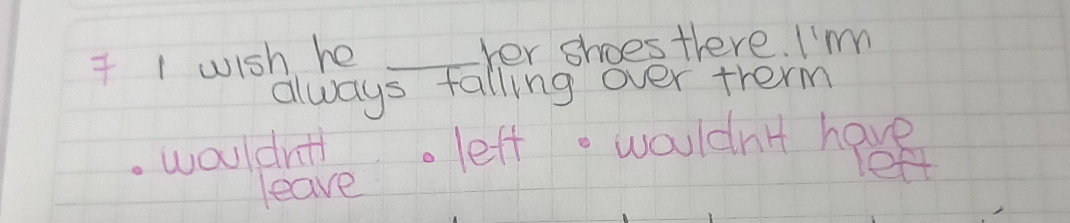 7 I wish he ____ her shoes there. I'm
always falling over therm
• wouldn't • left • wouldn't have
leave left